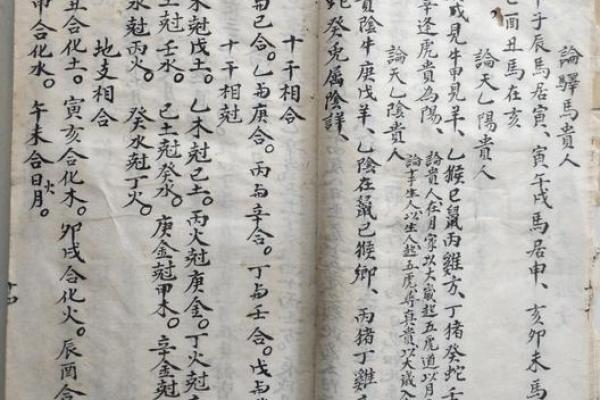 論驛馬貴人
子辰馬居寅、寅午戌馬居申、亥卯未馬
酉丑馬在亥
論天乙陽貴人
戌見牛甲見羊、乙猴巳鼠丙雞方、丁猪癸蛇
辛逢虎貴為陽、
論貴人在月家以大歲起五虎道以月
論事生人以生人起五虎尋真貴以大歲入
論天乙陰貴人
貴陰牛庚戊羊、乙陰在鼠巳猴卿、丙猪丁雞
蛇癸兔属陰詳、
十干相合
与己合。乙与庚合。丙与辛合。丁与壬合。戊与
十干相尅
木尅戊土。乙木尅己土。丙火尅庚金。丁火尅
土尅壬水。己土尅癸水。庚金尅甲木。辛金尅
水尅丙火。癸水尅丁火。
地支相合
丑合化土。寅亥合化木。卯戌合化火。辰酉合
申合化水。午未合日月。
火